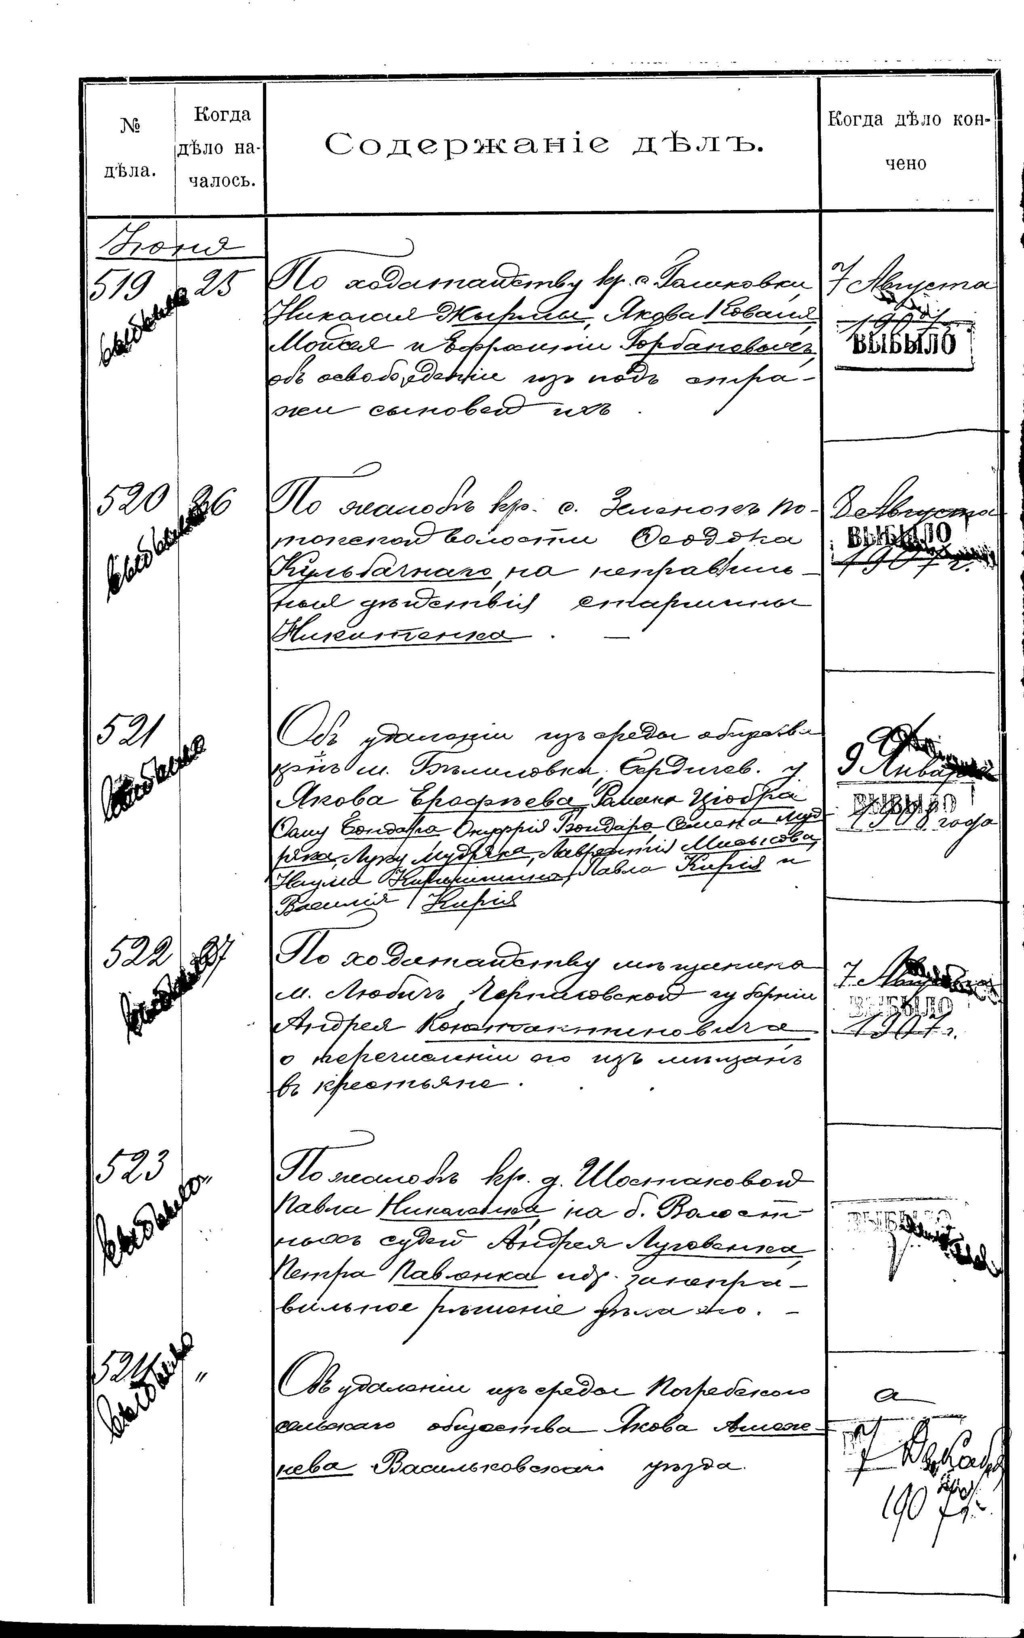 № дѣла.
Когда дѣло на-
чалось.
Содержаніе дѣлъ.
Когда дѣло кон-
чено
Іюня
519 25 выбыло
По ходатайству кр. с. Гальковки
Николая Жырмы, Якова Коваля,
Мойсея и Ефросиніи Горбановыхъ,
объ освобожденіи изъ подъ стра-
жи сыновей ихъ.
7 Августа
1907
ВЫБЫЛО
520 26 выбыло
По жалобѣ кр. с.
волости Ѳеодота
Кульбачнаго, на неправиль-
ныя дѣйствія старшины
Никитенка. —
8 Августа
ВЫБЫЛО
1907 г.
521 выбыло
Объ удаленіи изъ среды общества
кр-нъ м. Бѣлиловки Бердичев. у.
Якова Ерофѣева, Романа Цюбра
Саву Бондара, Онуфрія Бондара, Семена Муд-
ряка, Луку Мудряка, Лаврентія
Наума Павла Кирія и
Василія Кирія
9 Января
ВЫБЫЛО
1908 года
522 27 выбыло
По ходатайству мѣщанина
м. Любичъ, Черниговской губерніи
Андрея Константиновича
о перечисленіи его изъ мѣщанъ
въ крестьяне.
7 Августа
ВЫБЫЛО
1907 г.
523 " выбыло
По жалобѣ кр. д. Шостаковой
Павла Николаенка, на б. Волост-
ныхъ судей Андрея Луговенка,
Петра Павленка и др. за непра-
вильное рѣшеніе дѣла его. —
ВЫБЫЛО
524 " выбыло
Объ удаленіи изъ среды Погребского
сельскаго общества Якова
Васильковскаго уѣзда.
7 Декабря
1907 г.